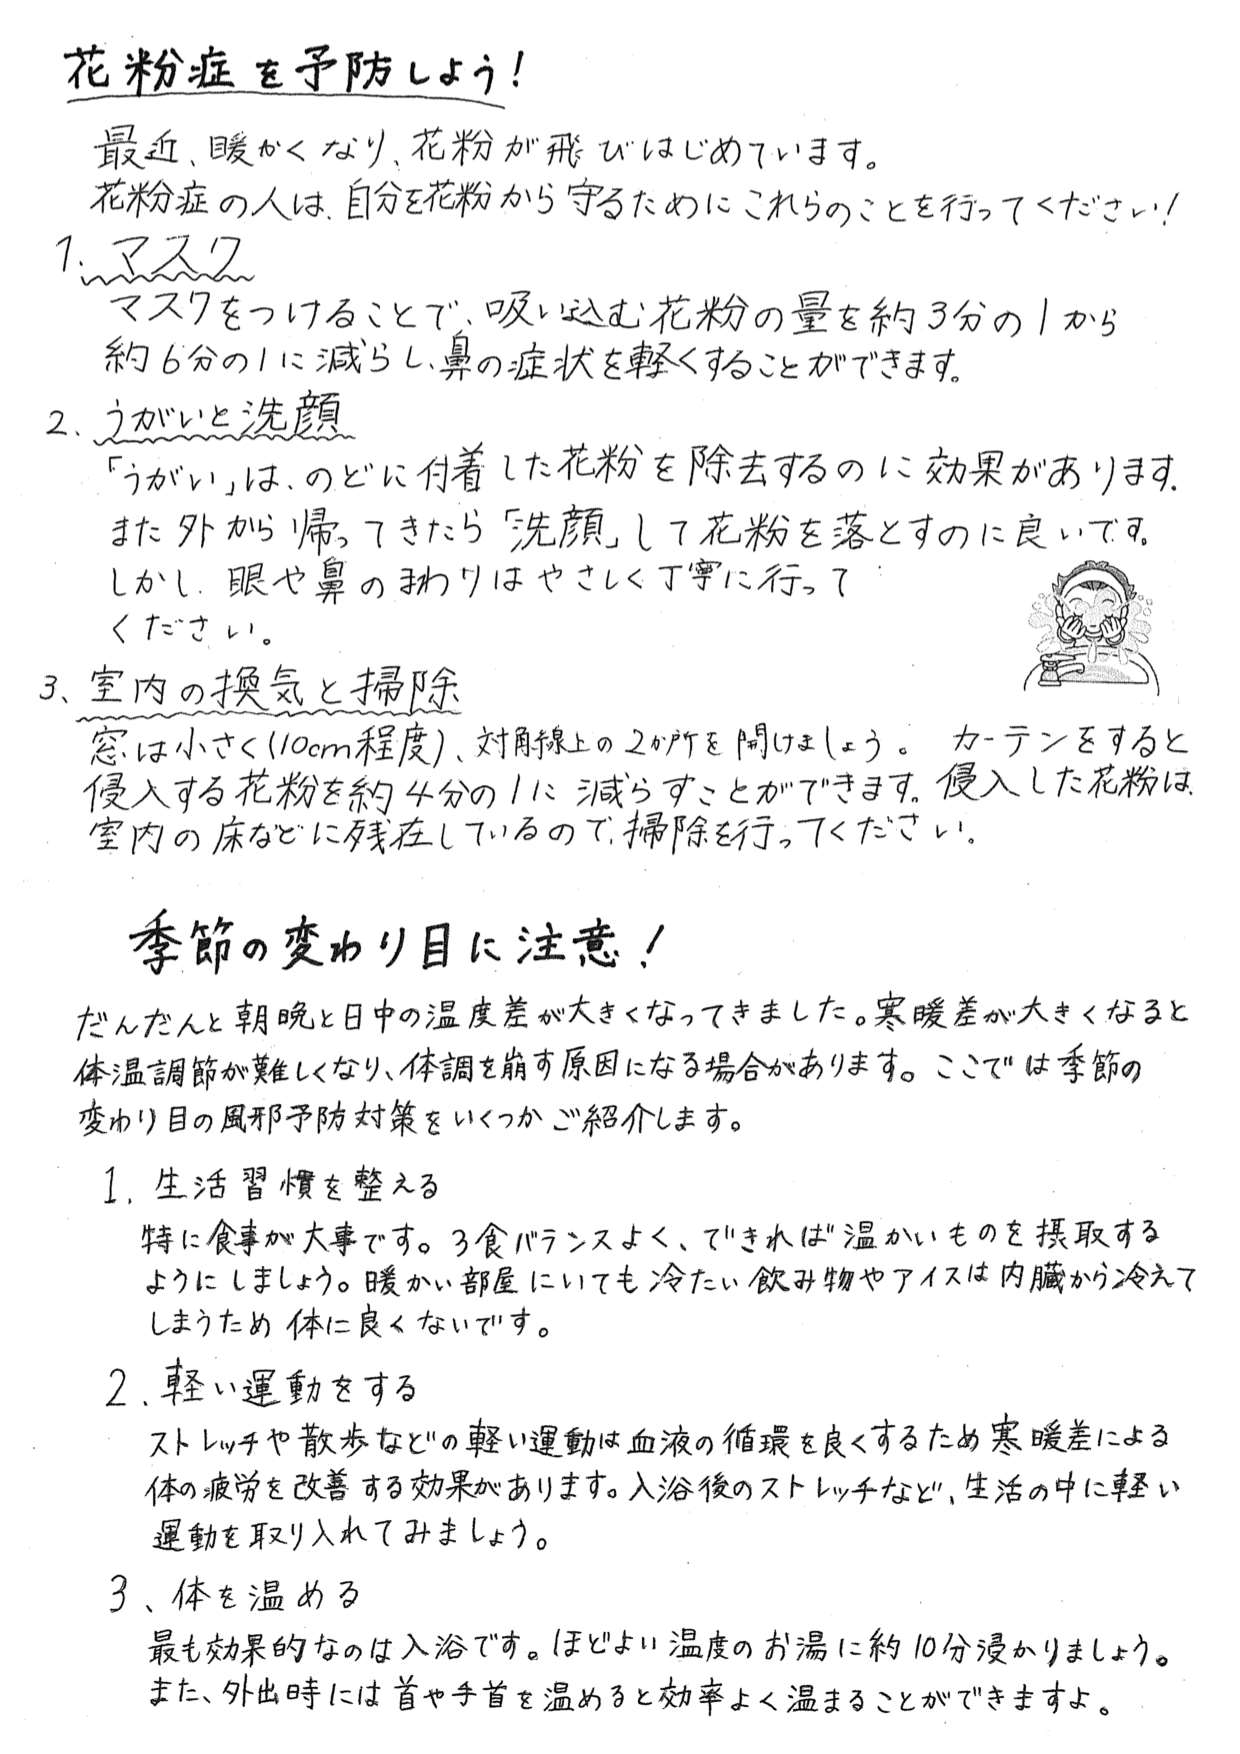 花粉症を予防しよう！
最近、暖かくなり、花粉が飛びはじめています。
花粉症の人は、自分を花粉から守るためにこれらのことを行ってください！
1. マスク
マスクをつけることで、吸い込む花粉の量を約3分の1から
約6分の1に減らし、鼻の症状を軽くすることができます。
2、うがいと洗顔
「うがい」は、のどに付着した花粉を除去するのに効果があります。
また外から帰ってきたら「洗顔」して花粉を落とすのに良いです。
しかし、眼や鼻のまわりはやさしく丁寧に行って
ください。
3、室内の換気と掃除
窓は小さく(10cm程度)、対角線上の2か所を開けましょう。カーテンをすると
侵入する花粉を約4分の1に減らすことができます。侵入した花粉は、
室内の床などに残在しているので、掃除を行ってください。
季節の変わり目に注意！
だんだんと朝晩と日中の温度差が大きくなってきました。寒暖差が大きくなると
体温調節が難しくなり、体調を崩す原因になる場合があります。ここでは季節の
変わり目の風邪予防対策をいくつかご紹介します。
1. 生活習慣を整える
特に食事が大事です。3食バランスよく、できれば温かいものを摂取する
ようにしましょう。暖かい部屋にいても冷たい飲み物やアイスは内臓から冷えて
しまうため体に良くないです。
2、軽い運動をする
ストレッチや散歩などの軽い運動は血液の循環を良くするため寒暖差による
体の疲労を改善する効果があります。入浴後のストレッチなど、生活の中に軽い
運動を取り入れてみましょう。
3、体を温める
最も効果的なのは入浴です。ほどよい温度のお湯に約10分浸かりましょう。
また、外出時には首や手首を温めると効率よく温まることができますよ。